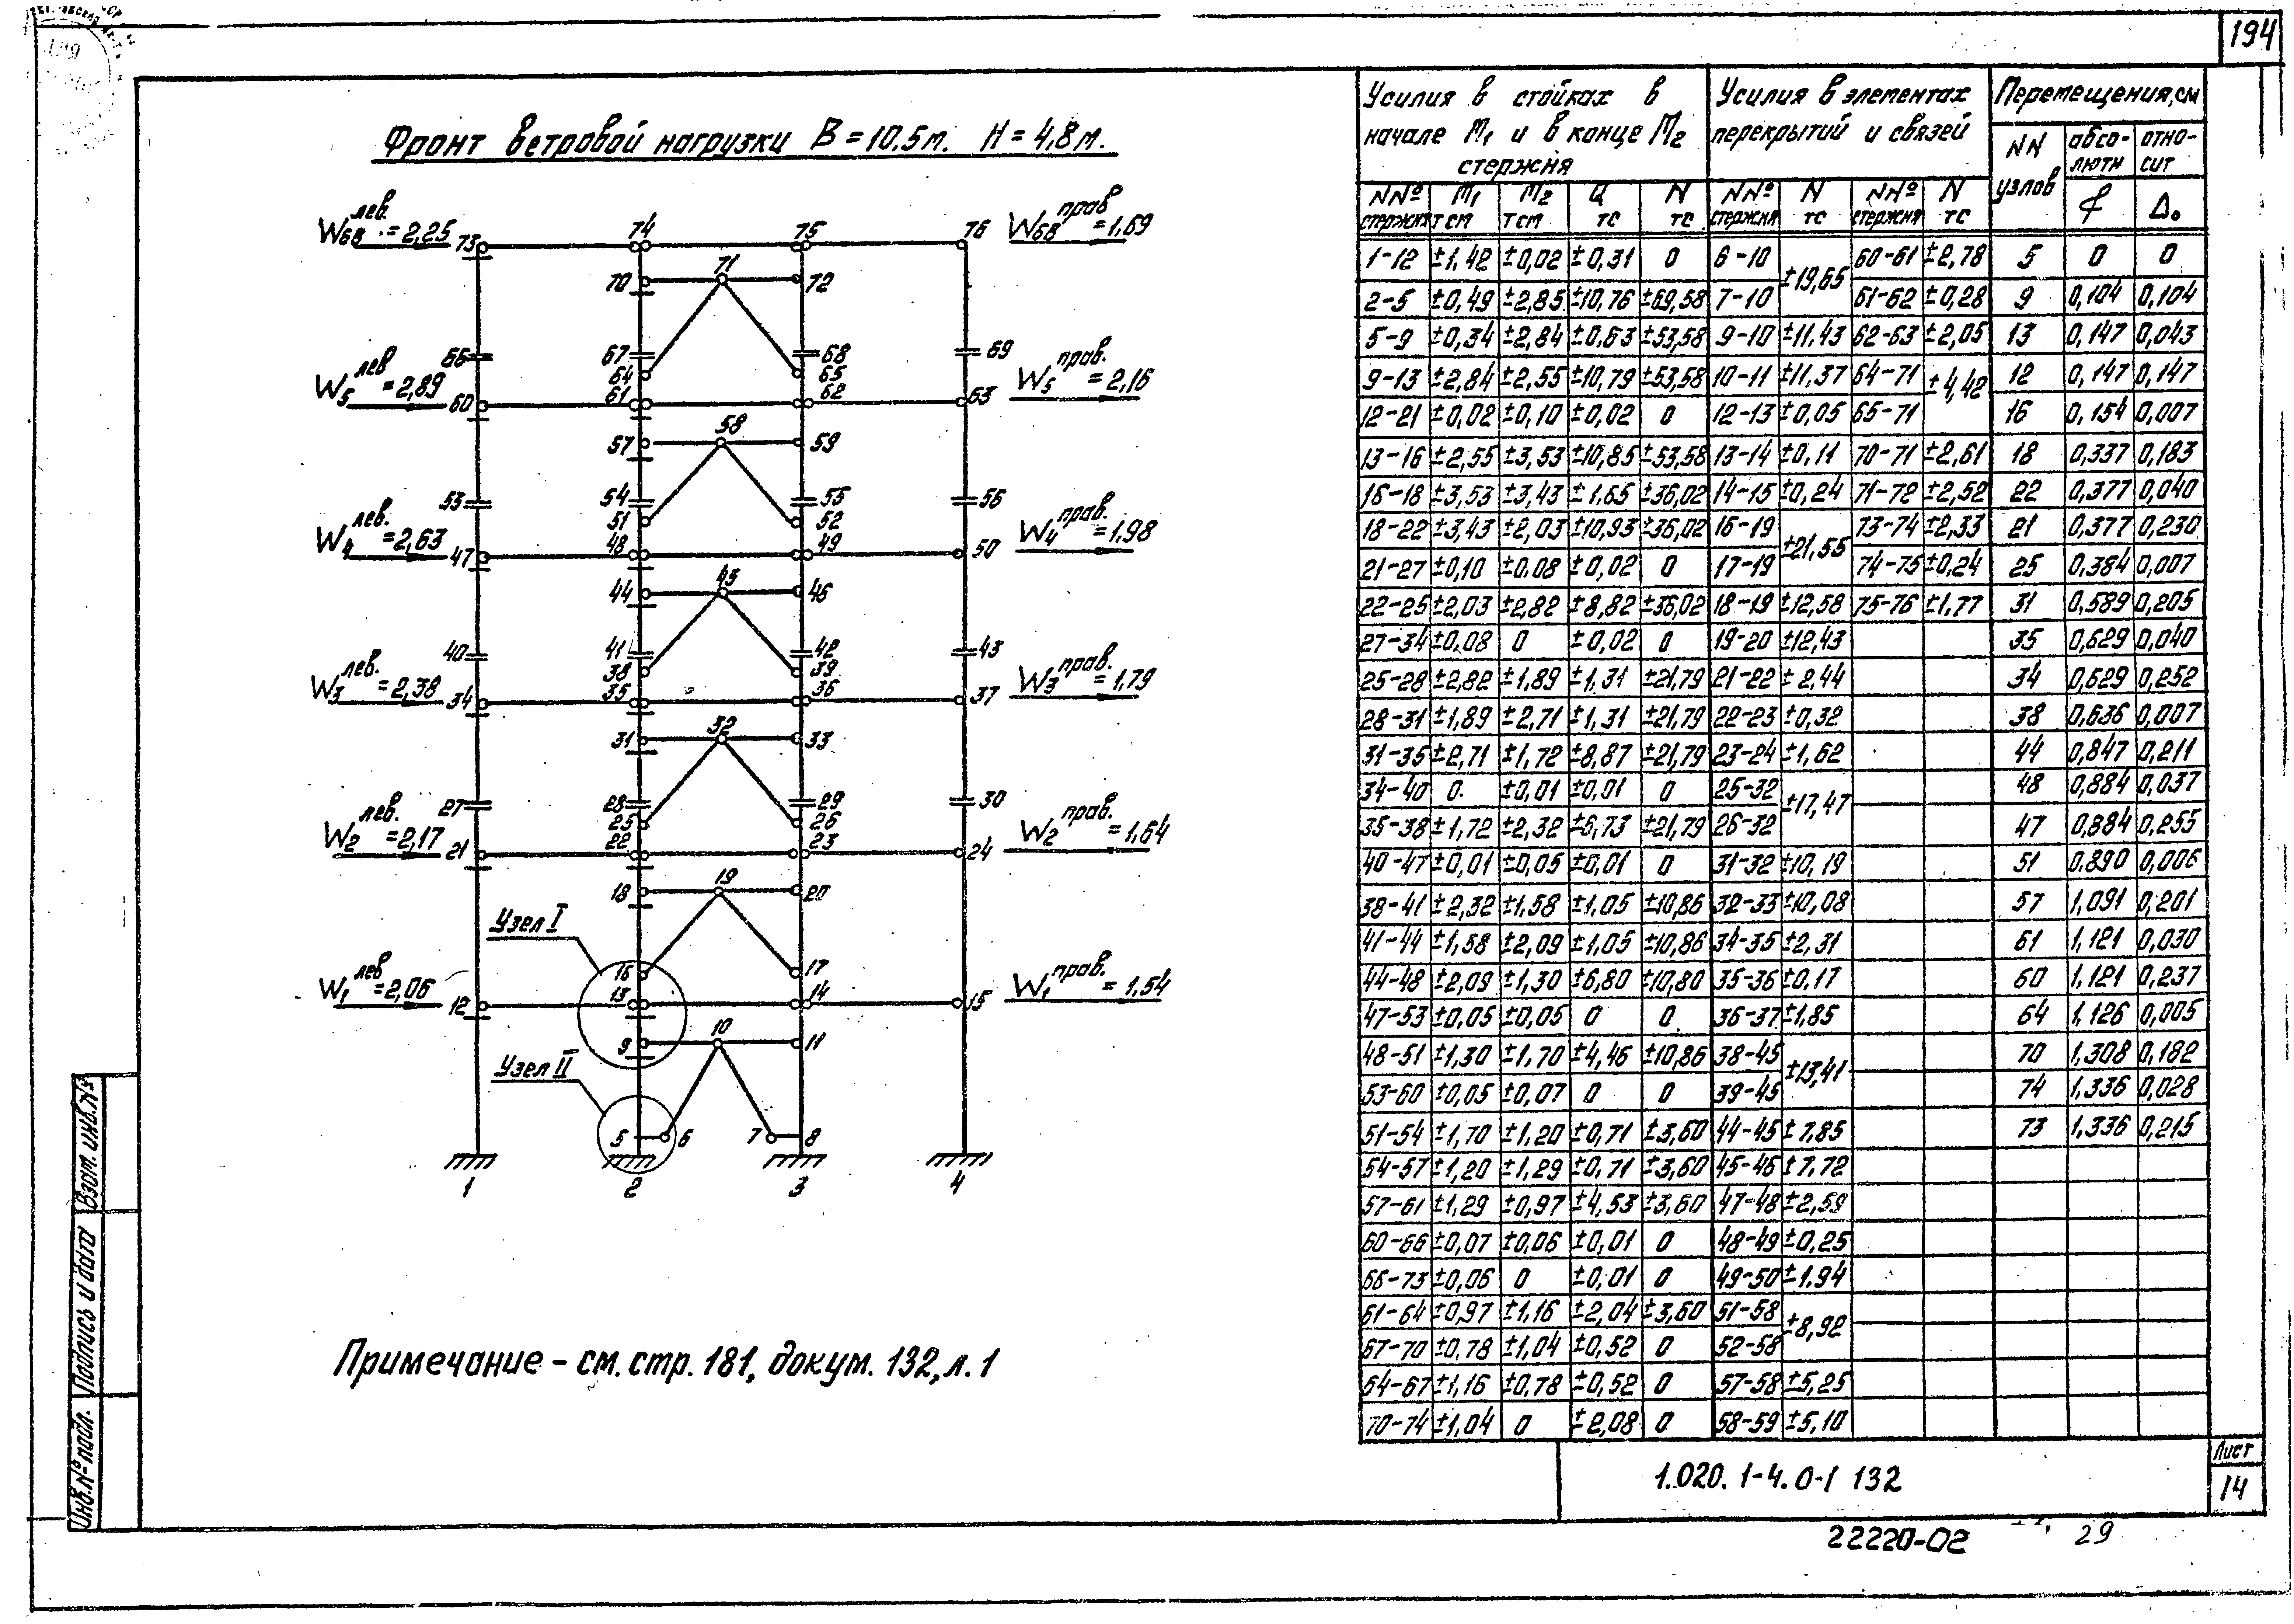 194
Фронт ветровой нагрузки В=10,5м. Н=4,8м.
W6в лев. =2,25
W6в прав =1,69
W5 лев =2,89
W5 прав. =2,16
W4 лев. =2,63
W4 прав. =1,98
W3 лев. =2,38
W3 прав. =1,79
W2 лев. =2,17
W2 прав. =1,64
W1 лев =2,06
W1 прав. =1,54
73 74 75 76
70 71 72
66 67 68 69
64 65
60 61 62 63
57 58 59
53 54 55 56
51 52
47 48 49 50
44 45 46
40 41 42 43
38 39
34 35 36 37
31 32 33
27 28 29 30
25 26
21 22 23 24
18 19 20
Узел I
16 17
12 13 14 15
9 10 11
Узел II
5 6 7 8
1 2 3 4
Примечание - см. стр. 181, докум. 132, л. 1
Усилия в стойках в начале М1 и в конце М2 стержня
Усилия в элементах перекрытий и связей
Перемещения, см
NN№ стержня М1 тсм М2 тсм Q тс N тс NN№ стержня N тс NN№ стержня N тс NN узлов абсолютн f относит Δо
1-12 ±1,42 ±0,02 ±0,31 0 6-10 ±19,65 60-61 ±2,78 5 0 0
2-5 ±0,49 ±2,85 ±10,76 ±69,58 7-10 61-62 ±0,28 9 0,104 0,104
5-9 ±0,34 ±2,84 ±0,63 ±53,58 9-10 ±11,43 62-63 ±2,05 13 0,147 0,043
9-13 ±2,84 ±2,55 ±10,79 ±53,58 10-11 ±11,37 64-71 ±4,42 12 0,147 0,147
12-21 ±0,02 ±0,10 ±0,02 0 12-13 ±0,05 65-71 16 0,154 0,007
13-16 ±2,55 ±3,53 ±10,85 ±53,58 13-14 ±0,11 70-71 ±2,61 18 0,337 0,183
16-18 ±3,53 ±3,43 ±1,65 ±36,02 14-15 ±0,24 71-72 ±2,52 22 0,377 0,040
18-22 ±3,43 ±2,03 ±10,93 ±36,02 16-19 ±21,55 73-74 ±2,33 21 0,377 0,230
21-27 ±0,10 ±0,08 ±0,02 0 17-19 74-75 ±0,24 25 0,384 0,007
22-25 ±2,03 ±2,82 ±8,82 ±36,02 18-19 ±12,58 75-76 ±1,77 31 0,589 0,205
27-34 ±0,08 0 ±0,02 0 19-20 ±12,43 35 0,629 0,040
25-28 ±2,82 ±1,89 ±1,31 ±21,79 21-22 ±2,44 34 0,629 0,252
28-31 ±1,89 ±2,71 ±1,31 ±21,79 22-23 ±0,32 38 0,636 0,007
31-35 ±2,71 ±1,72 ±8,87 ±21,79 23-24 ±1,62 44 0,847 0,211
34-40 0 ±0,01 ±0,01 0 25-32 ±17,47 48 0,884 0,037
35-38 ±1,72 ±2,32 ±6,73 ±21,79 26-32 47 0,884 0,255
40-47 ±0,01 ±0,05 ±0,01 0 31-32 ±10,19 51 0,890 0,006
38-41 ±2,32 ±1,58 ±1,05 ±10,86 32-33 ±10,08 57 1,091 0,201
41-44 ±1,58 ±2,09 ±1,05 ±10,86 34-35 ±2,31 61 1,121 0,030
44-48 ±2,09 ±1,30 ±6,80 ±10,80 35-36 ±0,17 60 1,121 0,237
47-53 ±0,05 ±0,05 0 0 36-37 ±1,85 64 1,126 0,005
48-51 ±1,30 ±1,70 ±4,46 ±10,86 38-45 ±13,41 70 1,308 0,182
53-60 ±0,05 ±0,07 0 0 39-45 74 1,336 0,028
51-54 ±1,70 ±1,20 ±0,71 ±3,60 44-45 ±7,85 73 1,336 0,215
54-57 ±1,20 ±1,29 ±0,71 ±3,60 45-46 ±7,72
57-61 ±1,29 ±0,97 ±4,53 ±3,60 47-48 ±2,59
60-66 ±0,07 ±0,06 ±0,01 0 48-49 ±0,25
66-73 ±0,06 0 ±0,01 0 49-50 ±1,94
61-64 ±0,97 ±1,16 ±2,04 ±3,60 51-58 ±8,92
67-70 ±0,78 ±1,04 ±0,52 0 52-58
64-67 ±1,16 ±0,78 ±0,52 0 57-58 ±5,25
70-74 ±1,04 0 ±2,08 0 58-59 ±5,10
1.020.1-4.0-1 132
Лист
14
22220-02
29
Инв.№ подл. Подпись и дата Взам. инв.№